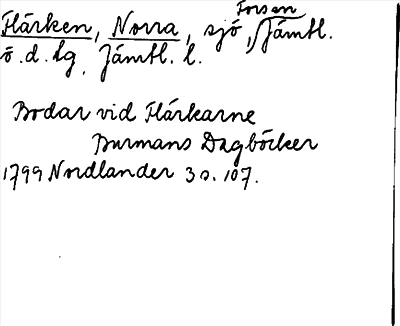 Flårken, Norra, sjö, Forsen Jämtl.
ö. d. lg. Jämtl. l.
Bodar vid Flårkarne
Burmans Dagböcker
1799 Nordlander 3 s. 107.